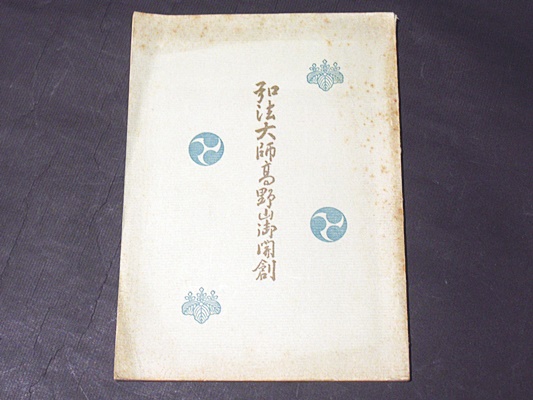 弘法大師高野山御開創